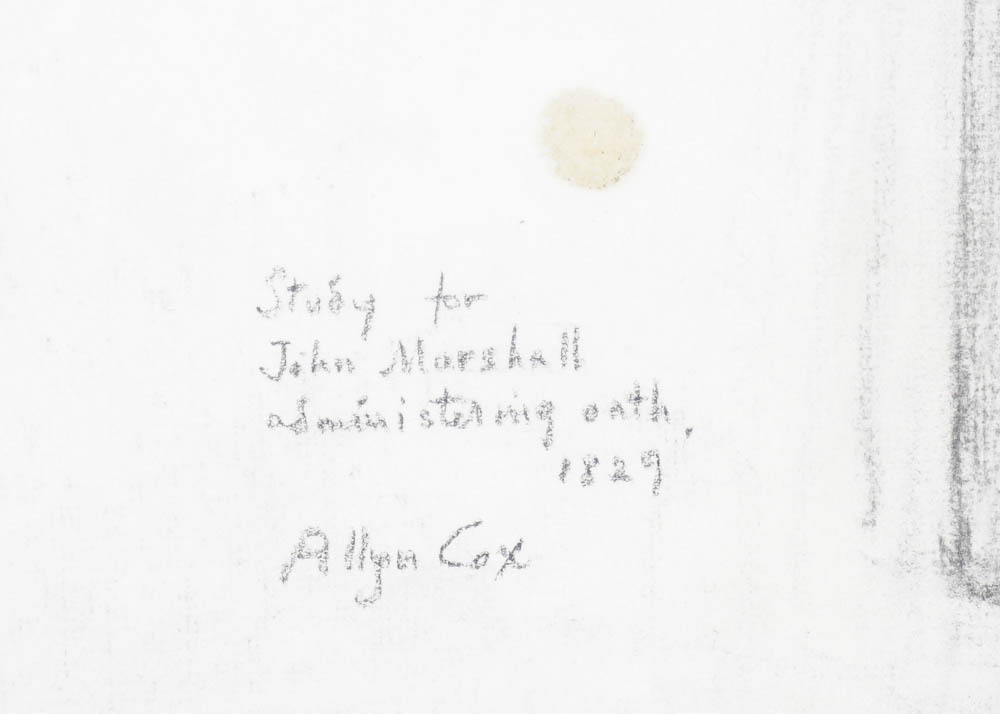 Study for
John Marshall
administering oath,
1829
Allyn Cox